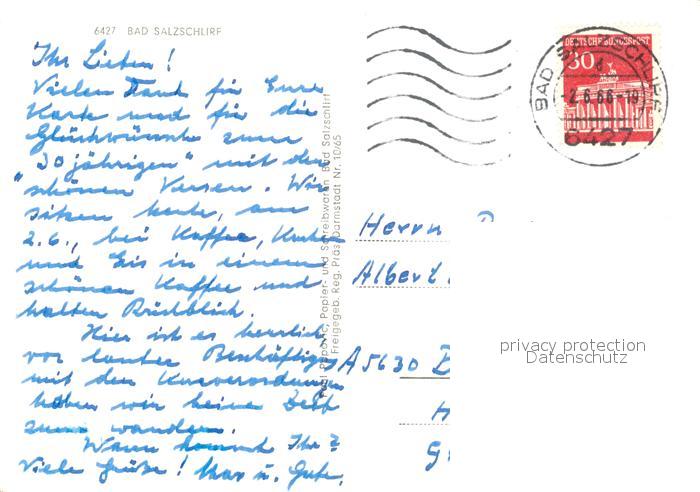 6427 BAD SALZSCHLIRF
Ihr Lieben!
Vielen Dank für Eure
Karte und für die
Glückwünsche zum
"30jährigen" mit den
schönen Versen. Wir
sitzen heute, am
2.6., bei Kaffee, Kuchen
und Eis in einem
schönen Kaffee und
halten Rückblick.
Hier ist es herrlich,
vor lauter Beschäftigung
mit den Kurverordnungen
haben wir keine Zeit
zum wandern.
Wann kommt Ihr?
Viele Grüße! Max u. Gute.
Papier- und Schreibwaren Bad Salzschlirf
Freigegeb. Reg. Präs. Darmstadt Nr. 10/65
DEUTSCHE BUNDESPOST
30
BAD SALZSCHLIRF
-2.6.66-19
6427
Herrn
Albert
A5630
privacy protection
Datenschutz